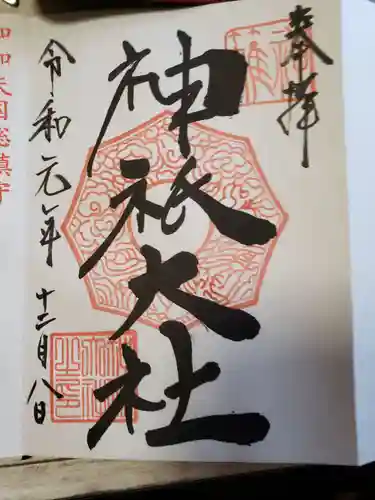 奉拝
神祇大社
令和元年十二月八日
国総鎮守